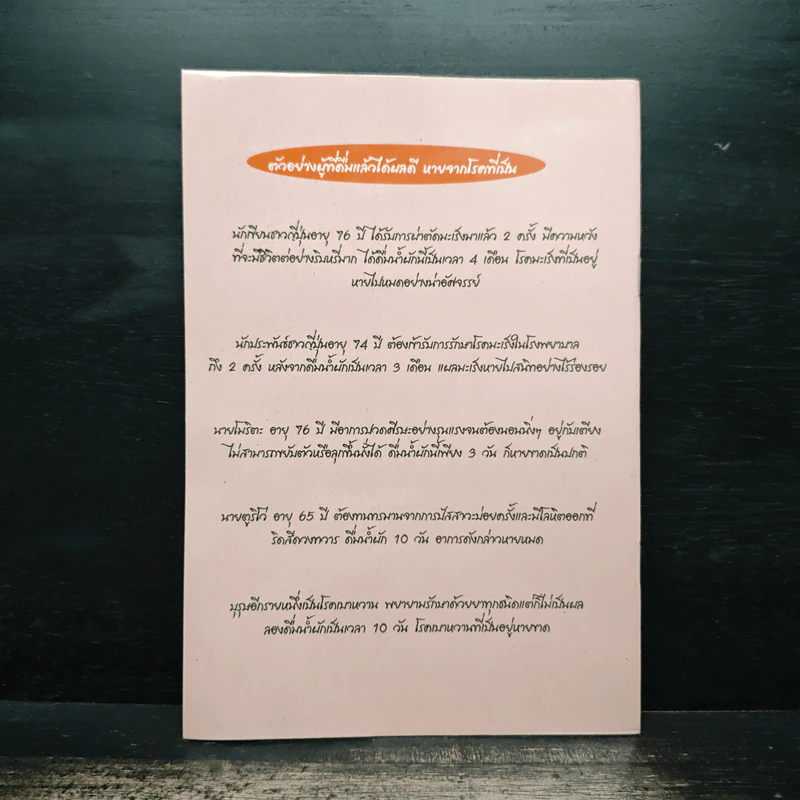 ตัวอย่างผู้ที่ดื่มแล้วได้ผลดี หายจากโรคที่เป็น
นักเขียนชาวญี่ปุ่นอายุ 76 ปี ได้รับการผ่าตัดมะเร็งมาแล้ว 2 ครั้ง มีความหวัง
ที่จะมีชีวิตต่ออย่างริบหรี่มาก ได้ดื่มน้ำผักนี้เป็นเวลา 4 เดือน โรคมะเร็งที่เป็นอยู่
หายไปหมดอย่างน่าอัศจรรย์
นักประพันธ์ชาวญี่ปุ่นอายุ 74 ปี ต้องเข้ารับการรักษาโรคมะเร็งในโรงพยาบาล
ถึง 2 ครั้ง หลังจากดื่มน้ำผักเป็นเวลา 3 เดือน แผลมะเร็งหายไปสนิทอย่างไร้ร่องรอย
นายโมริตะ อายุ 76 ปี มีอาการปวดศีรษะอย่างรุนแรงจนต้องนอนนิ่งๆ อยู่กับเตียง
ไม่สามารถขยับตัวหรือลุกขึ้นนั่งได้ ดื่มน้ำผักนี้เพียง 3 วัน ก็หายขาดเป็นปกติ
นายตูริโว่ อายุ 65 ปี ต้องทนทรมานจากการปัสสาวะบ่อยครั้งและมีโลหิตออกที่
ริดสีดวงทวาร ดื่มน้ำผัก 10 วัน อาการดังกล่าวหายหมด
บุรุษอีกรายหนึ่งเป็นโรคเบาหวาน พยายามรักษาด้วยยาทุกชนิดแต่ก็ไม่เป็นผล
ลองดื่มน้ำผักเป็นเวลา 10 วัน โรคเบาหวานที่เป็นอยู่หายขาด